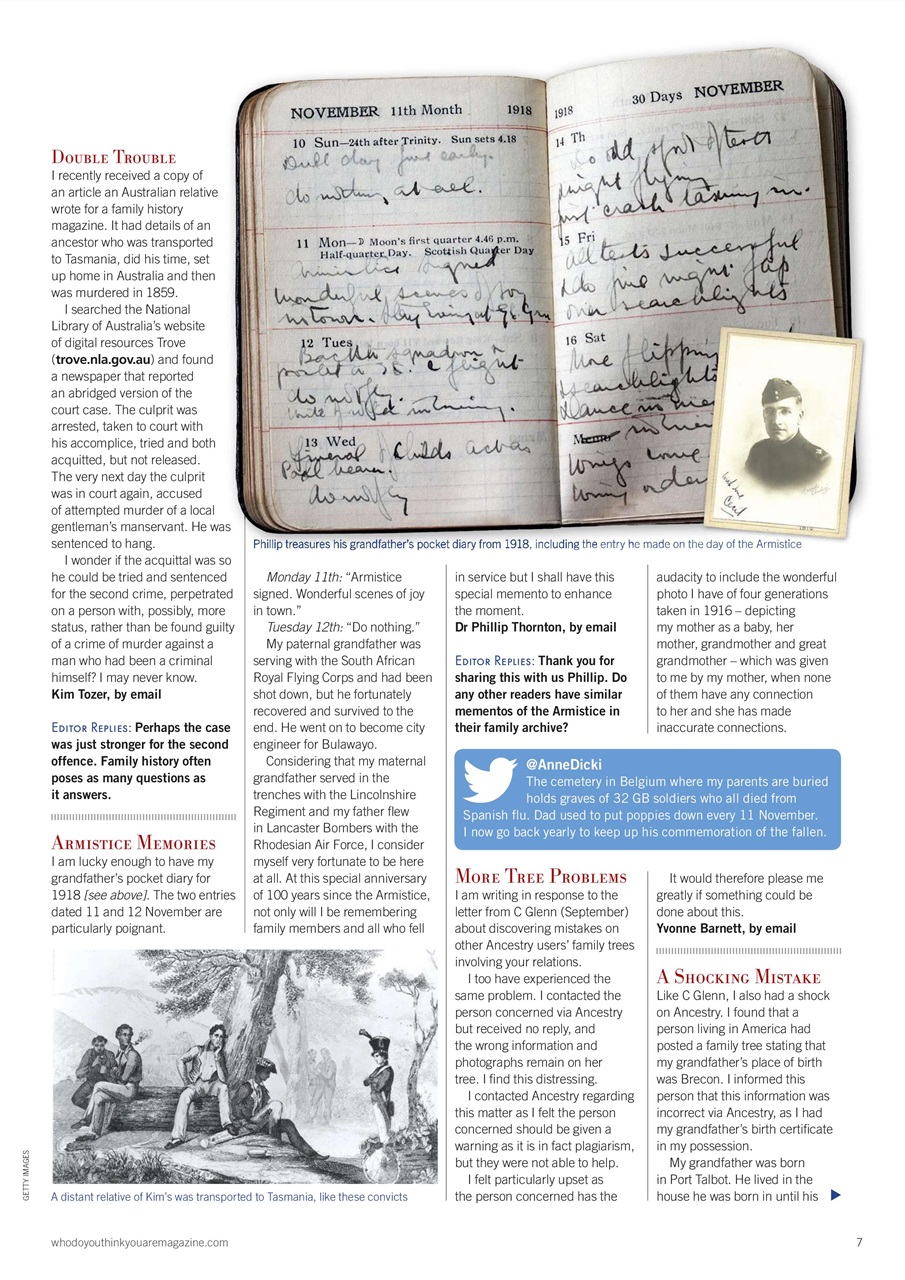 NOVEMBER 11th Month 1918
10 Sun—24th after Trinity. Sun sets 4.18
Dull day fine early.
do nothing at all.
11 Mon—☽ Moon's first quarter 4.46 p.m.
Half-quarter Day. Scottish Quarter Day
Armistice signed
Wonderful scenes of joy
in town.
12 Tues
squadron
flight
do nothing.
13 Wed
funeral of Childs act as
Pall bearer.
1918 30 Days NOVEMBER
14 Th
Do odd spot of tests
night flying
just crash taking in.
15 Fri
All tests successful
& do five night flip
over searchlights
16 Sat
More flipping
searchlights
Dance in
Memo
Wings
Cecil
1918
Phillip treasures his grandfather's pocket diary from 1918, including the entry he made on the day of the Armistice
DOUBLE TROUBLE
I recently received a copy of
an article an Australian relative
wrote for a family history
magazine. It had details of an
ancestor who was transported
to Tasmania, did his time, set
up home in Australia and then
was murdered in 1859.
I searched the National
Library of Australia's website
of digital resources Trove
(trove.nla.gov.au) and found
a newspaper that reported
an abridged version of the
court case. The culprit was
arrested, taken to court with
his accomplice, tried and both
acquitted, but not released.
The very next day the culprit
was in court again, accused
of attempted murder of a local
gentleman's manservant. He was
sentenced to hang.
I wonder if the acquittal was so
he could be tried and sentenced
for the second crime, perpetrated
on a person with, possibly, more
status, rather than be found guilty
of a crime of murder against a
man who had been a criminal
himself? I may never know.
Kim Tozer, by email
EDITOR REPLIES: Perhaps the case
was just stronger for the second
offence. Family history often
poses as many questions as
it answers.
ARMISTICE MEMORIES
I am lucky enough to have my
grandfather's pocket diary for
1918 [see above]. The two entries
dated 11 and 12 November are
particularly poignant.
Monday 11th: “Armistice
signed. Wonderful scenes of joy
in town.”
Tuesday 12th: “Do nothing.”
My paternal grandfather was
serving with the South African
Royal Flying Corps and had been
shot down, but he fortunately
recovered and survived to the
end. He went on to become city
engineer for Bulawayo.
Considering that my maternal
grandfather served in the
trenches with the Lincolnshire
Regiment and my father flew
in Lancaster Bombers with the
Rhodesian Air Force, I consider
myself very fortunate to be here
at all. At this special anniversary
of 100 years since the Armistice,
not only will I be remembering
family members and all who fell
in service but I shall have this
special memento to enhance
the moment.
Dr Phillip Thornton, by email
EDITOR REPLIES: Thank you for
sharing this with us Phillip. Do
any other readers have similar
mementos of the Armistice in
their family archive?
@AnneDicki
The cemetery in Belgium where my parents are buried
holds graves of 32 GB soldiers who all died from
Spanish flu. Dad used to put poppies down every 11 November.
I now go back yearly to keep up his commemoration of the fallen.
MORE TREE PROBLEMS
I am writing in response to the
letter from C Glenn (September)
about discovering mistakes on
other Ancestry users' family trees
involving your relations.
I too have experienced the
same problem. I contacted the
person concerned via Ancestry
but received no reply, and
the wrong information and
photographs remain on her
tree. I find this distressing.
I contacted Ancestry regarding
this matter as I felt the person
concerned should be given a
warning as it is in fact plagiarism,
but they were not able to help.
I felt particularly upset as
the person concerned has the
audacity to include the wonderful
photo I have of four generations
taken in 1916 – depicting
my mother as a baby, her
mother, grandmother and great
grandmother – which was given
to me by my mother, when none
of them have any connection
to her and she has made
inaccurate connections.
It would therefore please me
greatly if something could be
done about this.
Yvonne Barnett, by email
A SHOCKING MISTAKE
Like C Glenn, I also had a shock
on Ancestry. I found that a
person living in America had
posted a family tree stating that
my grandfather's place of birth
was Brecon. I informed this
person that this information was
incorrect via Ancestry, as I had
my grandfather's birth certificate
in my possession.
My grandfather was born
in Port Talbot. He lived in the
house he was born in until his
GETTY IMAGES
A distant relative of Kim's was transported to Tasmania, like these convicts
whodoyouthinkyouaremagazine.com
7